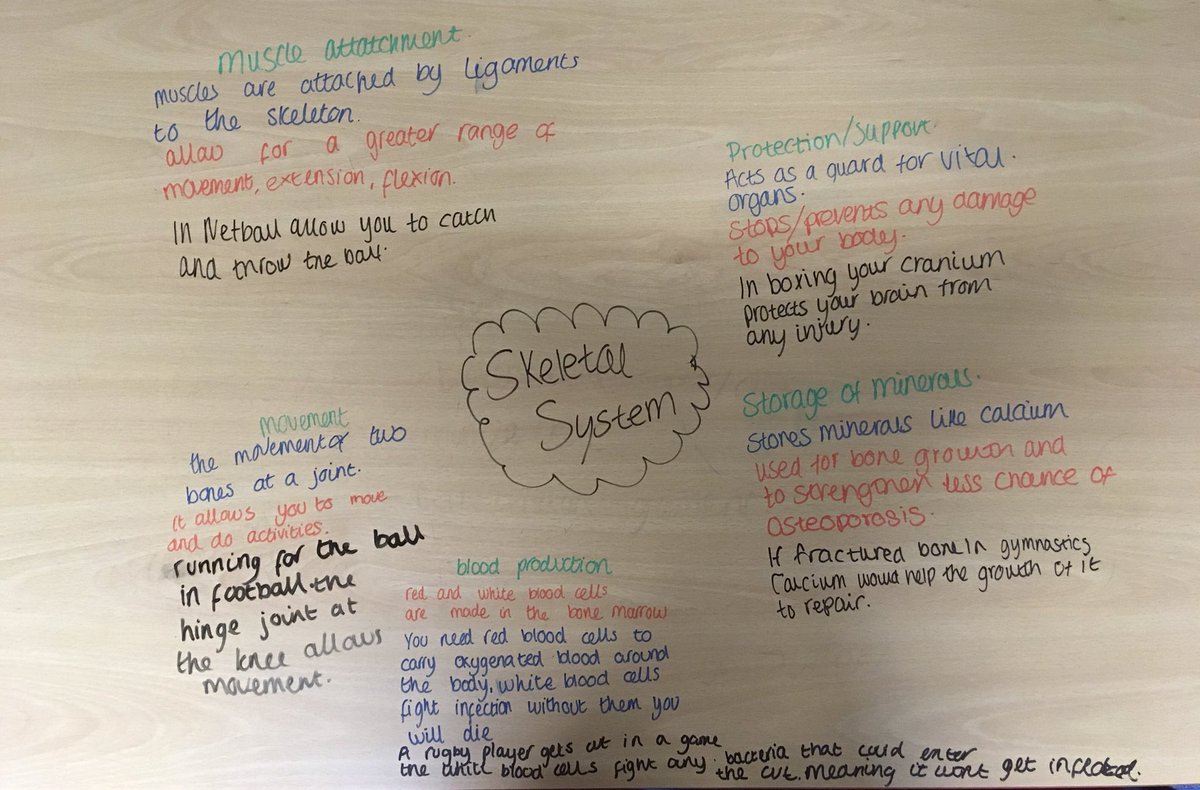 Muscle attatchment.
muscles are attached by ligaments
to the skeleton.
allow for a greater range of
movement, extension, flexion.
In Netball allow you to catch
and throw the ball.
Protection/support.
Acts as a guard for vital
organs.
Stops/prevents any damage
to your body.
In boxing your cranium
protects your brain from
any injury.
Skeletal
System
Storage of minerals.
Stores minerals like calcium
used for bone growth and
to strengthen less chance of
osteoporosis.
If fractured bone in gymnastics
Calcium would help the growth of it
to repair.
movement
the movement of two
bones at a joint.
it allows you to move
and do activities.
running for the ball
in football. the
hinge joint at
the knee allows
movement.
blood production
red and white blood cells
are made in the bone marrow
You need red blood cells to
carry oxygenated blood around
the body, white blood cells
fight infection without them you
will die
A rugby player gets cut in a game
the white blood cells fight any bacteria that could enter
the cut. meaning it wont get infected.